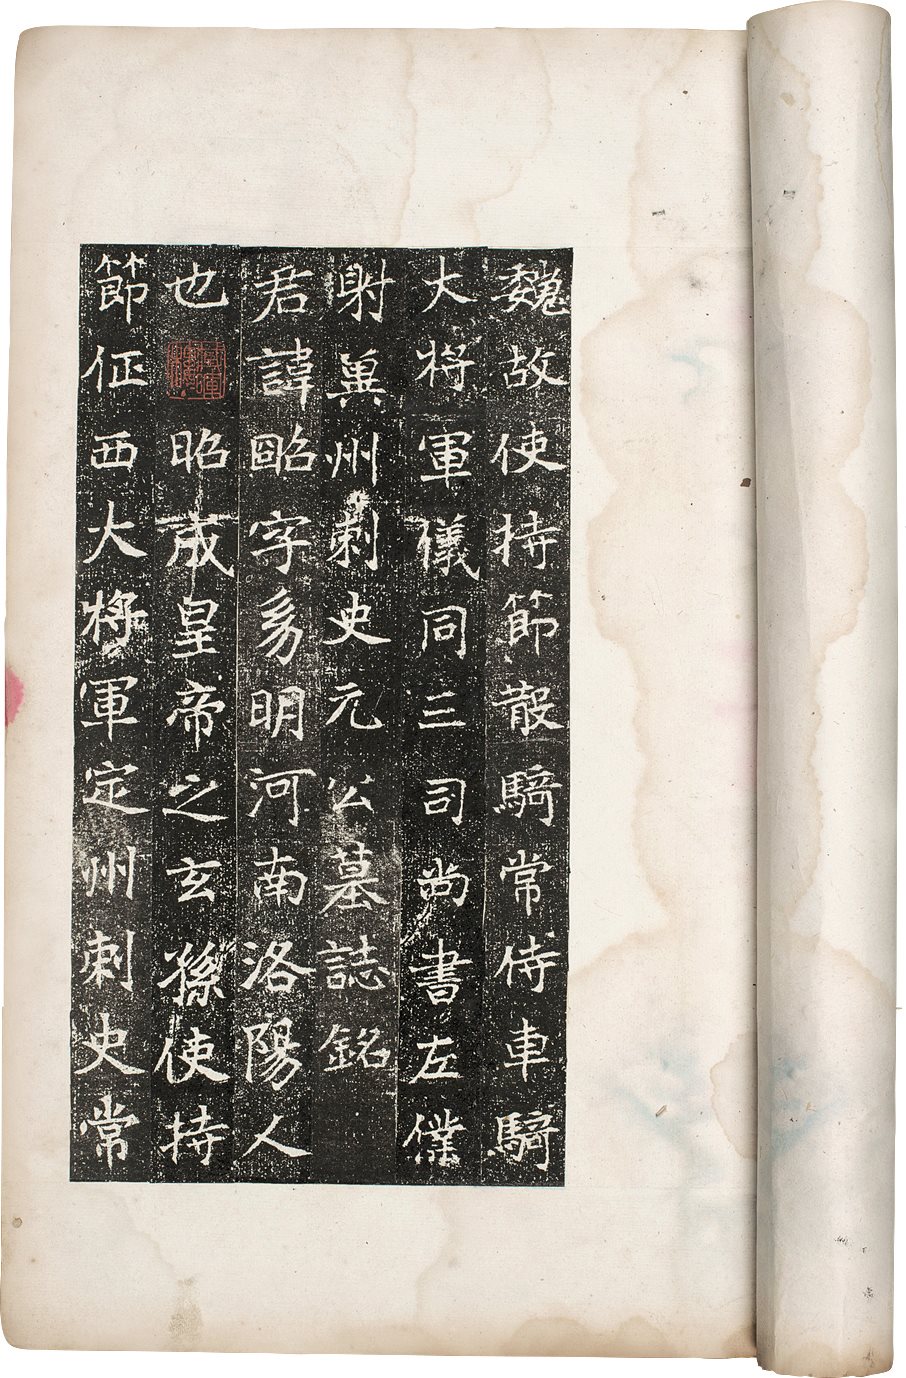 魏故使持節散騎常侍車騎
大將軍儀同三司尚書左僕
射冀州刺史元公墓誌銘
君諱昭字幼明河南洛陽人
也昭成皇帝之玄孫使持
節征西大將軍定州刺史常